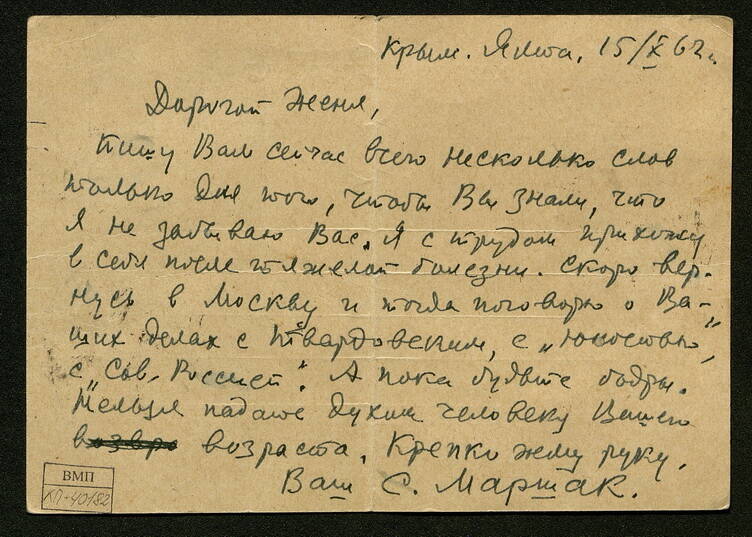 Крым. Ялта, 15/X 62 г.
Дорогой Женя,
Пишу Вам сейчас всего несколько слов
только для того, чтобы Вы знали, что
я не забываю Вас. Я с трудом прихожу
в себя после тяжелой болезни. Скоро вер-
нусь в Москву и тогда поговорю о Ва-
ших делах с Твардовским, с „Юностью“,
с „Сов. Россией“. А пока будьте бодры.
Нельзя падать духом человеку Вашего
возраста. Крепко жму руку.
Ваш С. Маршак.
ВМП
КП-40182